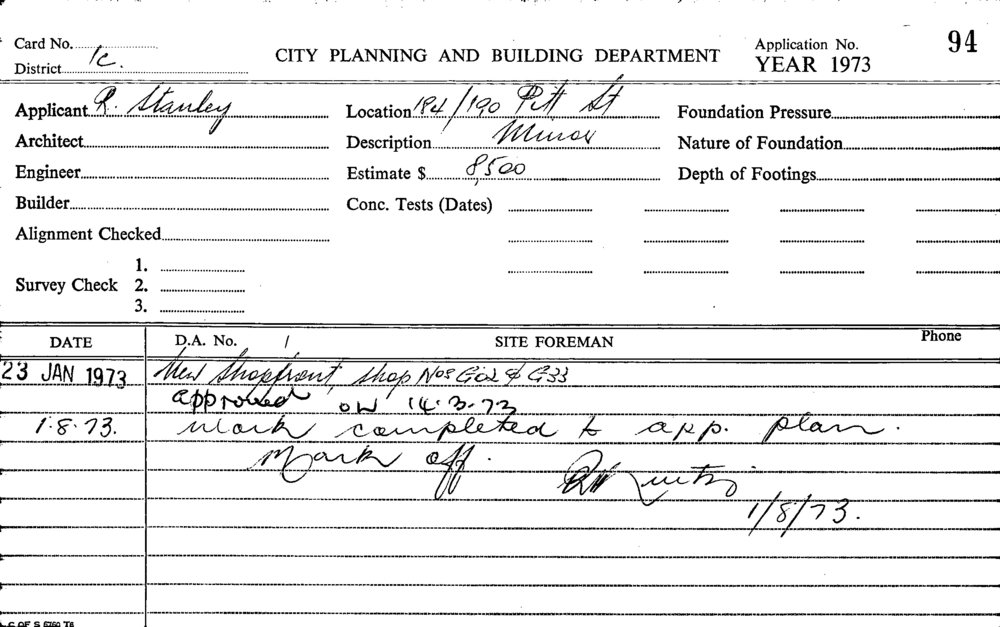 Card No.
District 1c.
CITY PLANNING AND BUILDING DEPARTMENT
Application No. 94
YEAR 1973
Applicant R. Stanley
Location 184/190 Pitt St
Foundation Pressure
Architect
Description Minor
Nature of Foundation
Engineer
Estimate $ 8,500
Depth of Footings
Builder
Conc. Tests (Dates)
Alignment Checked
Survey Check 1.
2.
3.
DATE D.A. No. / SITE FOREMAN Phone
23 JAN 1973 New Shopfront, shop Nos & G33
approved on 14.3.73
1.8.73. Work completed to app. plan.
Mark off.
1/8/73.
C OF S 6760 T6